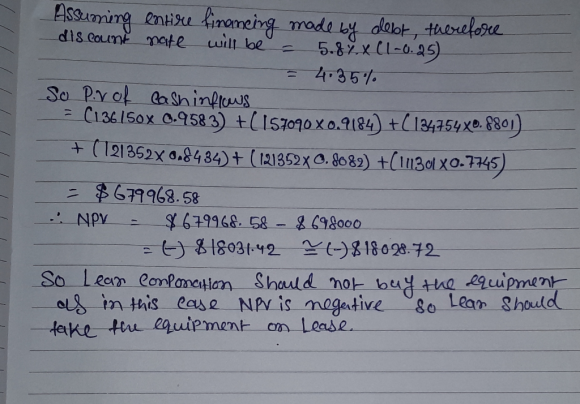 Assuming entire financing made by debt, therefore
discount rate will be = 5.8% x (1-0.25)
= 4.35%
So P.V of Cash inflows
= (136150 x 0.9583) + (157090 x 0.9184) + (134754 x 0.8801)
+ (121352 x 0.8434) + (121352 x 0.8082) + (111301 x 0.7745)
= $679968.58
∴ NPV = $679968.58 - $698000
= (-) $18031.42 ≅ (-) $18028.72
So Lean Corporation Should not buy the equipment
as in this case NPV is negative So Lean Should
take the equipment on Lease.